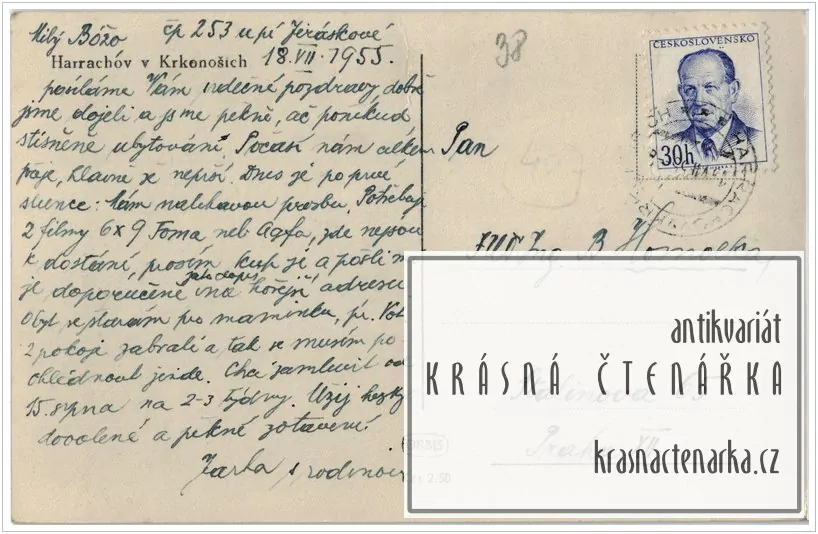 Milý Božo čp 253 u pí Jeráskové
Harrachóv v Krkonoších 18.VII.1955.
posíláme Vám srdečné pozdravy dobře
jsme dojeli a jsme pěkně, ač poněkud
stísněně ubytováni. Počasí nám celkem
přeje, hlavně že neprší. Dnes je po prvé
slunce. Mám nalehavou prosbu. Potřebuji
2 filmy 6x9 Foma neb Agfa, zde nejsou
k dostání, prosím kup je a pošli mi
jako dopis
je doporučeně na hořejší adresu.
Obyt. se starám pro maminku, pí.
2 pokoje zabrali a tak se musím po-
ohlédnout jinde. Chci zamluvit od
15. srpna na 2-3 týdny. Užij hezky
dovolené a pěkné zotavení
Jarka s rodinou
38
ČESKOSLOVENSKO
30h
Pan
Ing. B.
Stalinova 65
Praha XII
ORBIS
2.50
antikvariát
KRÁSNÁ ČTENÁŘKA
krasnactenarka.cz